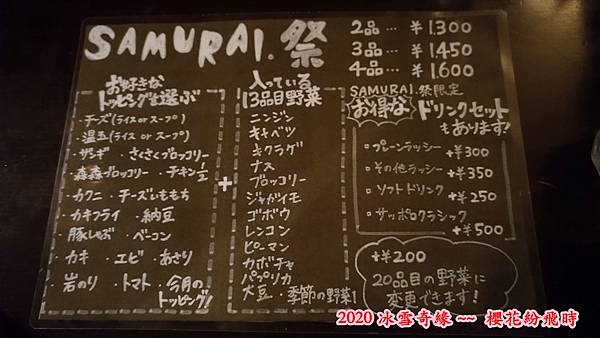 SAMURAI.祭
2品… ¥1.300
3品… ¥1.450
4品… ¥1.600
お好きな
トッピングを選ぶ
・チーズ(ライス or スープ)
・温玉(ライス or スープ)
・ザンギ ・さくさくブロッコリー
・森森ブロッコリー ・チキン1/2
・カクニ ・チーズいももち
・カキフライ ・納豆
・豚しゃぶ ・ベーコン
・カキ ・エビ ・あさり
・岩のり ・トマト ・今月のトッピング!!
+
入っている
13品目野菜
ニンジン
キャベツ
キクラゲ
ナス
ブロッコリー
ジャガイモ
ゴボウ
レンコン
ピーマン
カボチャ
パプリカ
大豆・季節の野菜1
SAMURAI.祭限定
お得な ドリンクセット
もあります!
▫プレーンラッシー +¥300
▫その他ラッシー +¥350
▫ソフトドリンク +¥250
▫サッポロクラシック +¥500
+¥200
20品目の野菜に
変更できます!
2020 冰雪奇緣 ~~ 櫻花紛飛時